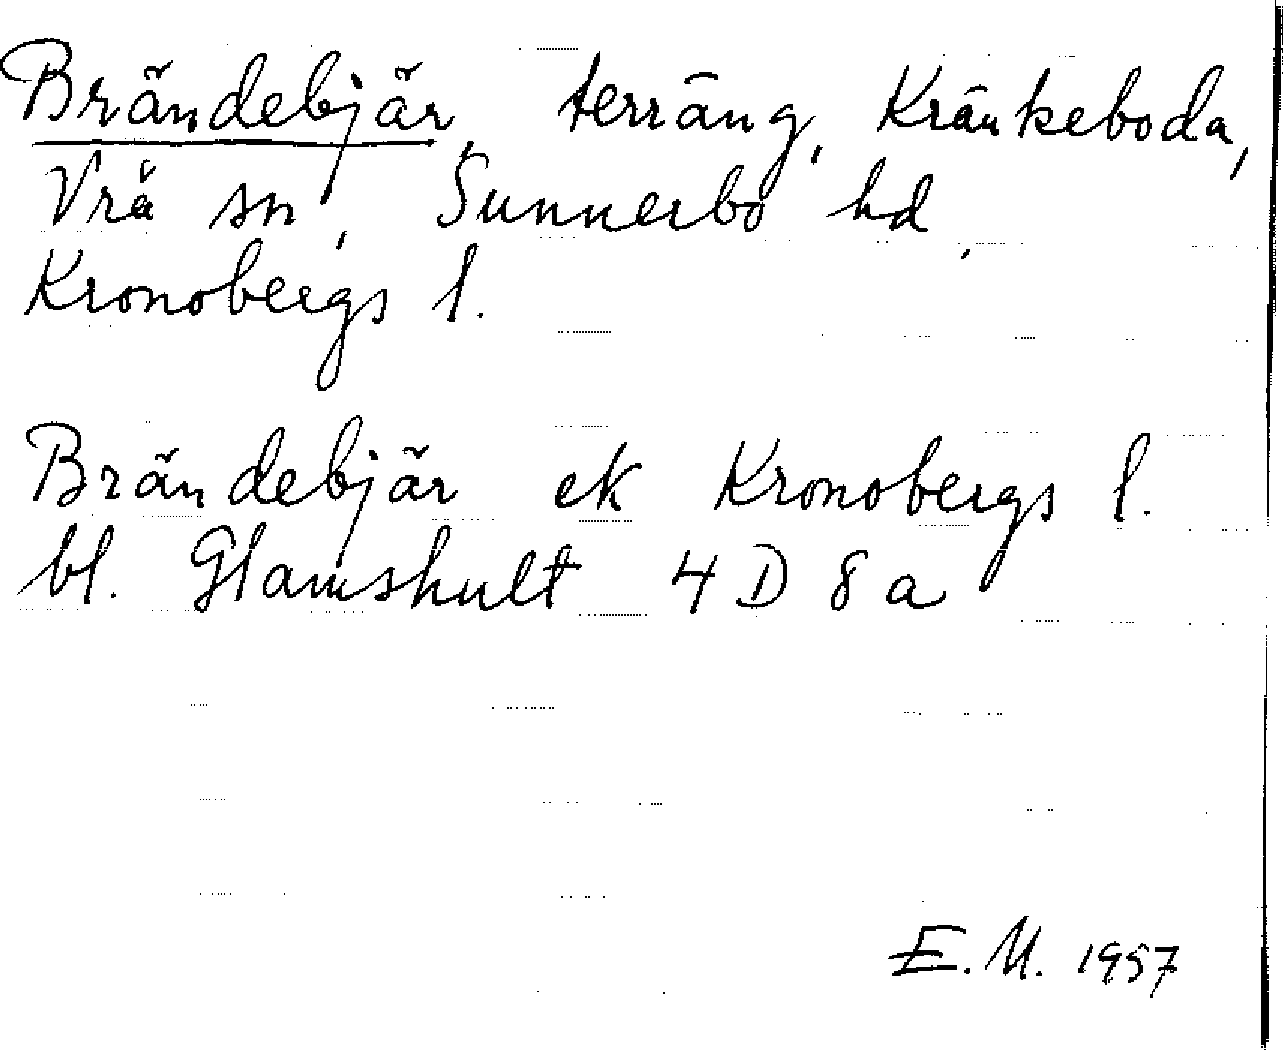 Brändebjär, terräng, Kränkeboda,
Vrå sn, Sunnerbo hd,
Kronobergs l.
Brändebjär ek Kronobergs l.
bl. Glamshult 4 D 8 a
E. M. 1957